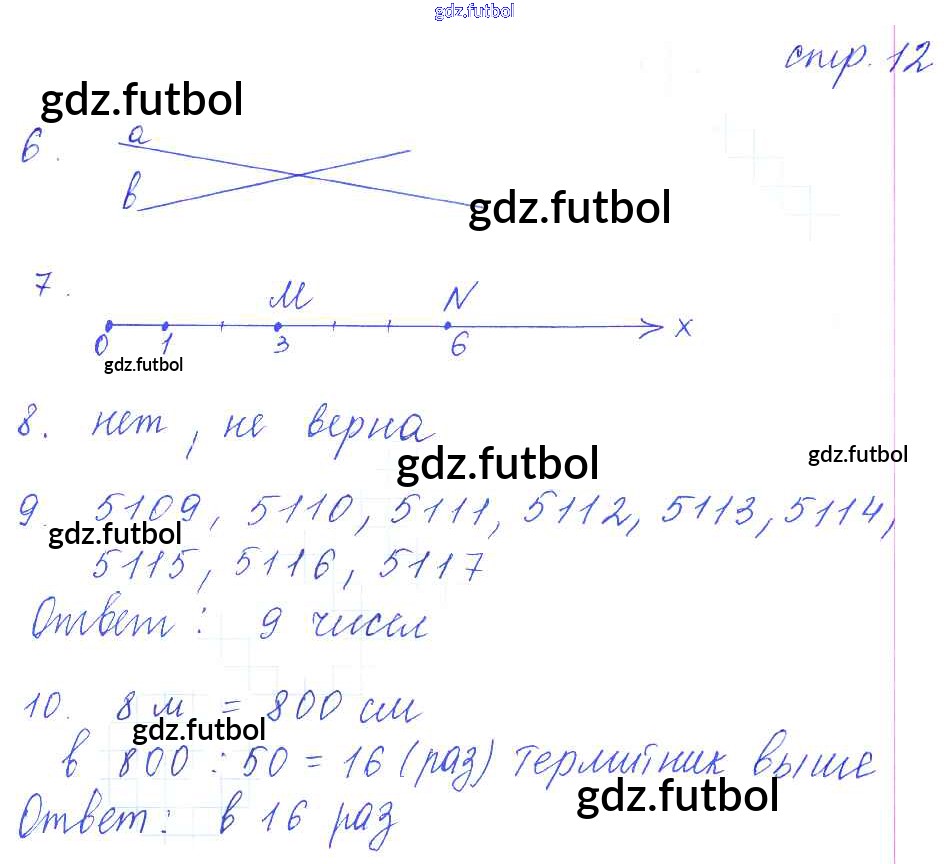 gdz.futbol
стр. 12
gdz.futbol
6. a
в
gdz.futbol
7.
M N
0 1 3 6 x
gdz.futbol
8. нет, не верна
gdz.futbol
gdz.futbol
9. 5109, 5110, 5111, 5112, 5113, 5114,
gdz.futbol
5115, 5116, 5117
Ответ: 9 чисел
10. 8 м = 800 см
gdz.futbol
в 800 : 50 = 16 (раз) термитник выше
gdz.futbol
Ответ: в 16 раз